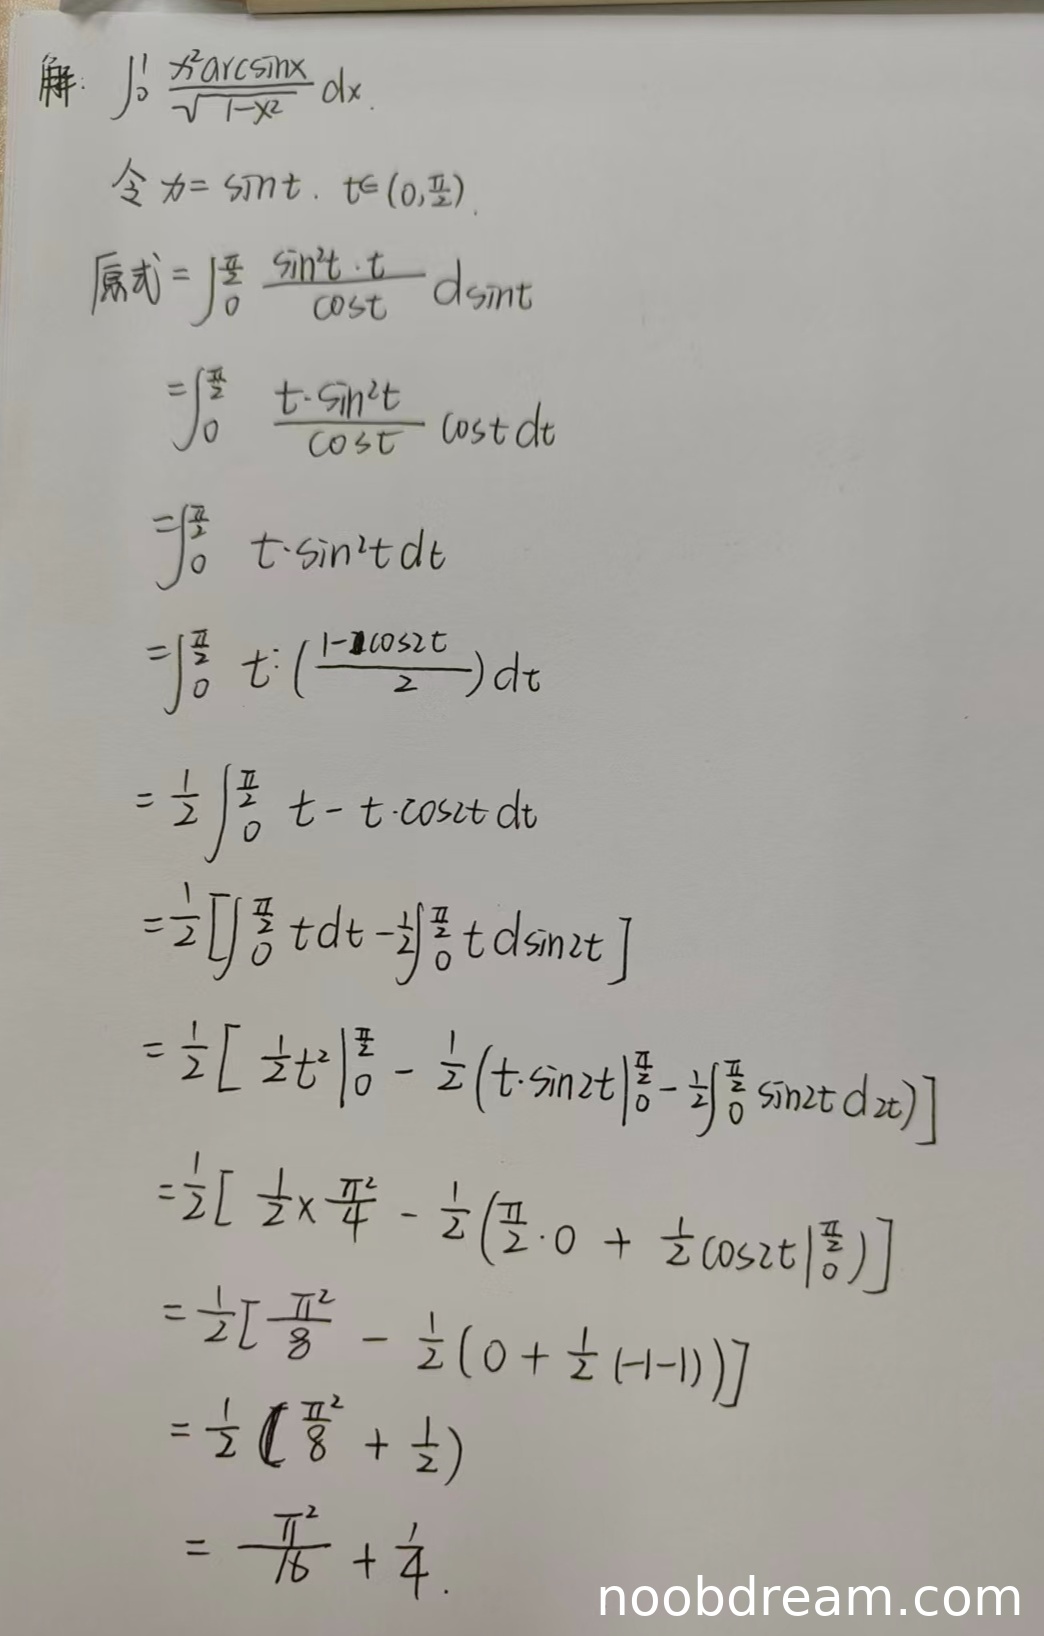 解: ∫₀¹ x²arcsinx/√(1-x²) dx.
令 x = sint. t∈(0,π/2).
原式 = ∫₀^(π/2) (sin²t·t)/cost dsint
= ∫₀^(π/2) (t·sin²t)/cost cost dt
= ∫₀^(π/2) t·sin²t dt
= ∫₀^(π/2) t·((1-cos2t)/2) dt
= 1/2 ∫₀^(π/2) t - t·cos2t dt
= 1/2 [∫₀^(π/2) t dt - 1/2 ∫₀^(π/2) t dsin2t]
= 1/2 [1/2 t² |₀^(π/2) - 1/2 (t·sin2t |₀^(π/2) - 1/2 ∫₀^(π/2) sin2t d2t)]
= 1/2 [1/2 × π²/4 - 1/2 (π/2·0 + 1/2 cos2t |₀^(π/2))]
= 1/2 [π²/8 - 1/2 (0 + 1/2 (-1-1))]
= 1/2 (π²/8 + 1/2)
= π²/16 + 1/4.
noobdream.com